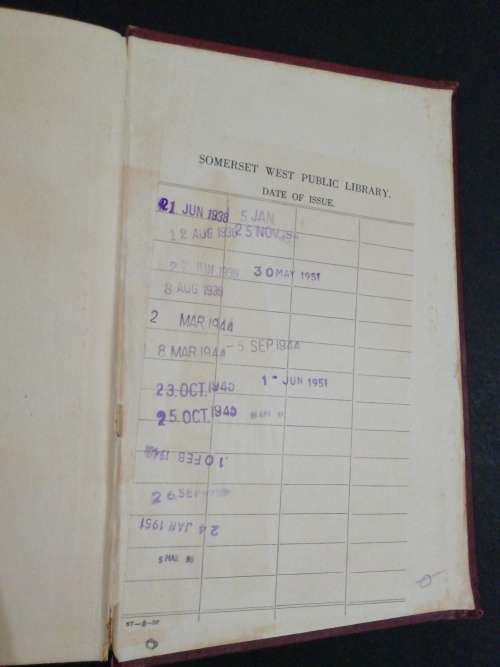 SOMERSET WEST PUBLIC LIBRARY.
DATE OF ISSUE.
21 JUN 1938 5 JAN
12 AUG 1938 25 NOV
JUN 1939 30 MAY 1951
8 AUG 1939
2 MAR 1944
8 MAR 1944 -5 SEP 1944
23.OCT.1945 1 - JUN 1951
25.OCT.1945
10 FEB
26.SEP
24 JAN 1951
5 MAR